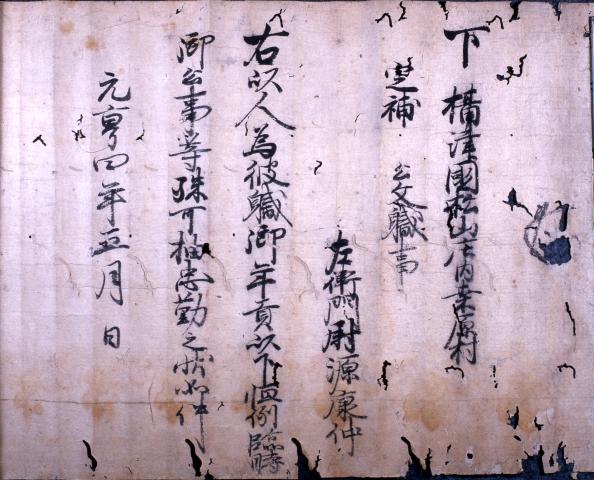 下 橘津國松山庄内桒原村
定補 公文職事
左衛門尉源康仲
右以人為彼職御年貢以下恒例臨時
御公事等殊可抽忠勤之状如件
元亨四年五月 日